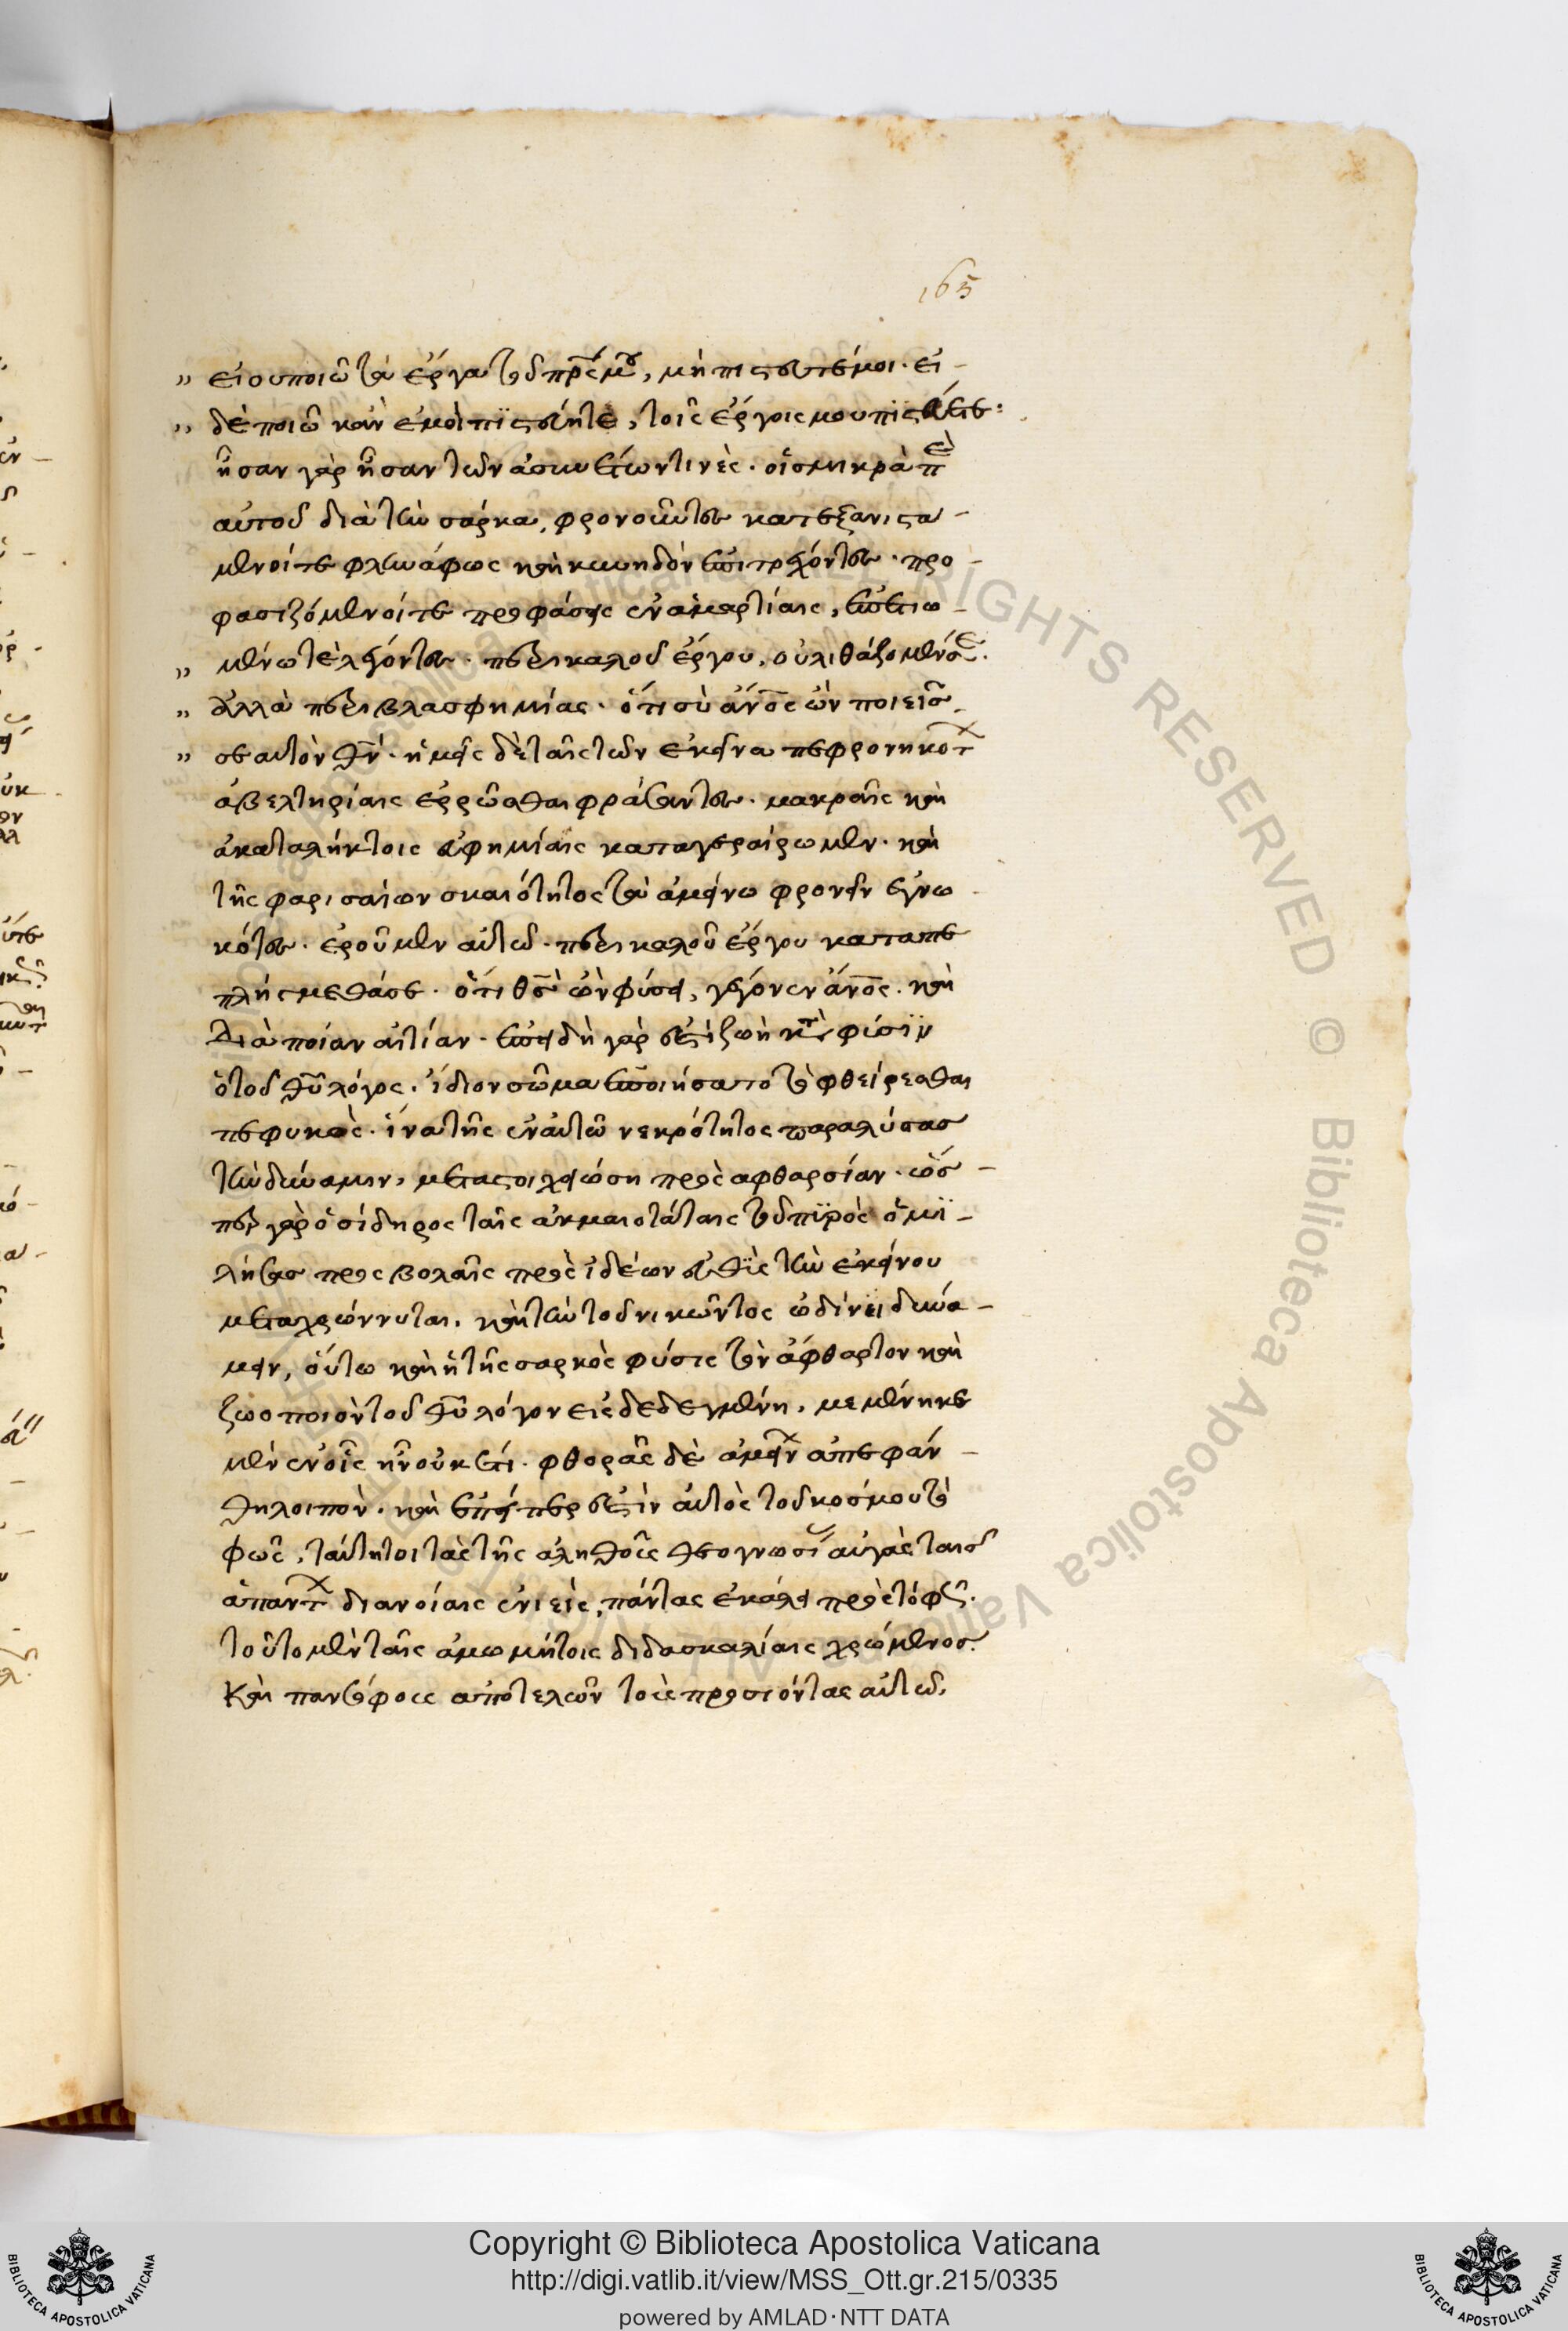 165
" εἰ οὐ ποιῶ τὰ ἔργα τοῦ πρς μου, μὴ πιστεύετέ μοι· εἰ -
" δὲ ποιῶ κἂν ἐμοὶ μὴ πιστεύητε, τοῖς ἔργοις μου πιστεύετε:
ἦσαν γὰρ ἦσαν τῶν ἀσυνέτων τινὲς· οἳ σμικρὰ πε
αὐτοῦ διὰ τὴν σάρκα, φρονοῦντες κατεξανιστα -
μενοί τε φλυνάφως καὶ κυνηδὸν ἐπιτρέχοντες· προ -
φασιζόμενοί τε προφάσεις ἐν ἁμαρτίαις,
" περὶ καλοῦ ἔργου, οὐ λιθάζομέν σε.
" ἀλλὰ περὶ βλασφημίας· ὅτι σὺ ἄνος ὢν ποιεῖς
" σεαυτὸν θν· ἡμεῖς δὲ ταῖς τῶν ἐκεῖνα πεφρονηκότων
ἀβελτηρίαις ἐρρῶσθαι φράσαντες· μακραῖς καὶ
ἀκαταλήκτοις εὐφημίαις καταγεραίρωμεν· καὶ
τῆς φαρισαίων σκαιότητος τὰ ἀμείνω φρονεῖν ἐγνω -
κότες· ἐροῦμεν αὐτῷ· περὶ καλοῦ ἔργου καταπε
πλήγμεθά σε· ὅτι θς ὢν φύσει, γέγονεν ἄνος· καὶ
διὰ ποίαν αἰτίαν· ἐπειδὴ γάρ ἐστι ζωὴ κατὰ φύσιν
ὁ τοῦ θυ λόγος· ἴδιον σῶμα ἐποιήσατο τὸ φθείρεσθαι
πεφυκὸς· ἵνα τῆς ἐν αὐτῷ νεκρότητος παραλύσας
τὴν δύναμιν, μεταστοιχειώσῃ πρὸς ἀφθαρσίαν· ὥσ -
περ γὰρ ὁ σίδηρος ταῖς ἀκμαιοτάταις τοῦ πυρὸς ὁμι -
λήσας προσβολαῖς πρὸς ἰδέαν εὐθὺς τὴν ἐκείνου
μεταχρώννυται, καὶ τὴν τοῦ νικῶντος ὠδίνει δύνα -
μιν, οὕτω καὶ ἡ τῆς σαρκὸς φύσις τὸν ἄφθαρτον καὶ
ζωοποιὸν τοῦ θυ λόγον εἰσδεδεγμένη, μεμένηκε
μὲν ἐν οἷς ἦν οὐκέτι· φθορᾶς δὲ ἀμείνων ἀπεφάν -
θη λοιπὸν· καὶ ἐπείπερ ἐστὶν αὐτὸς τοῦ κόσμου τὸ
φῶς, ταύτητοι τὰς τῆς ἀληθοῦς θεογνωσίας αὐγὰς ταῖς
ἁπάντων διανοίαις ἐνιεὶς, πάντας ἐκάλει πρὸς τὸ φῶς.
τοῦτο μὲν ταῖς ἀμωμήτοις διδασκαλίαις χρώμενος.
Καὶ πανσόφους ἀποτελῶν τοὺς προσιόντας αὐτῷ,
Copyright © Biblioteca Apostolica Vaticana
http://digi.vatlib.it/view/MSS_Ott.gr.215/0335
powered by AMLAD·NTT DATA